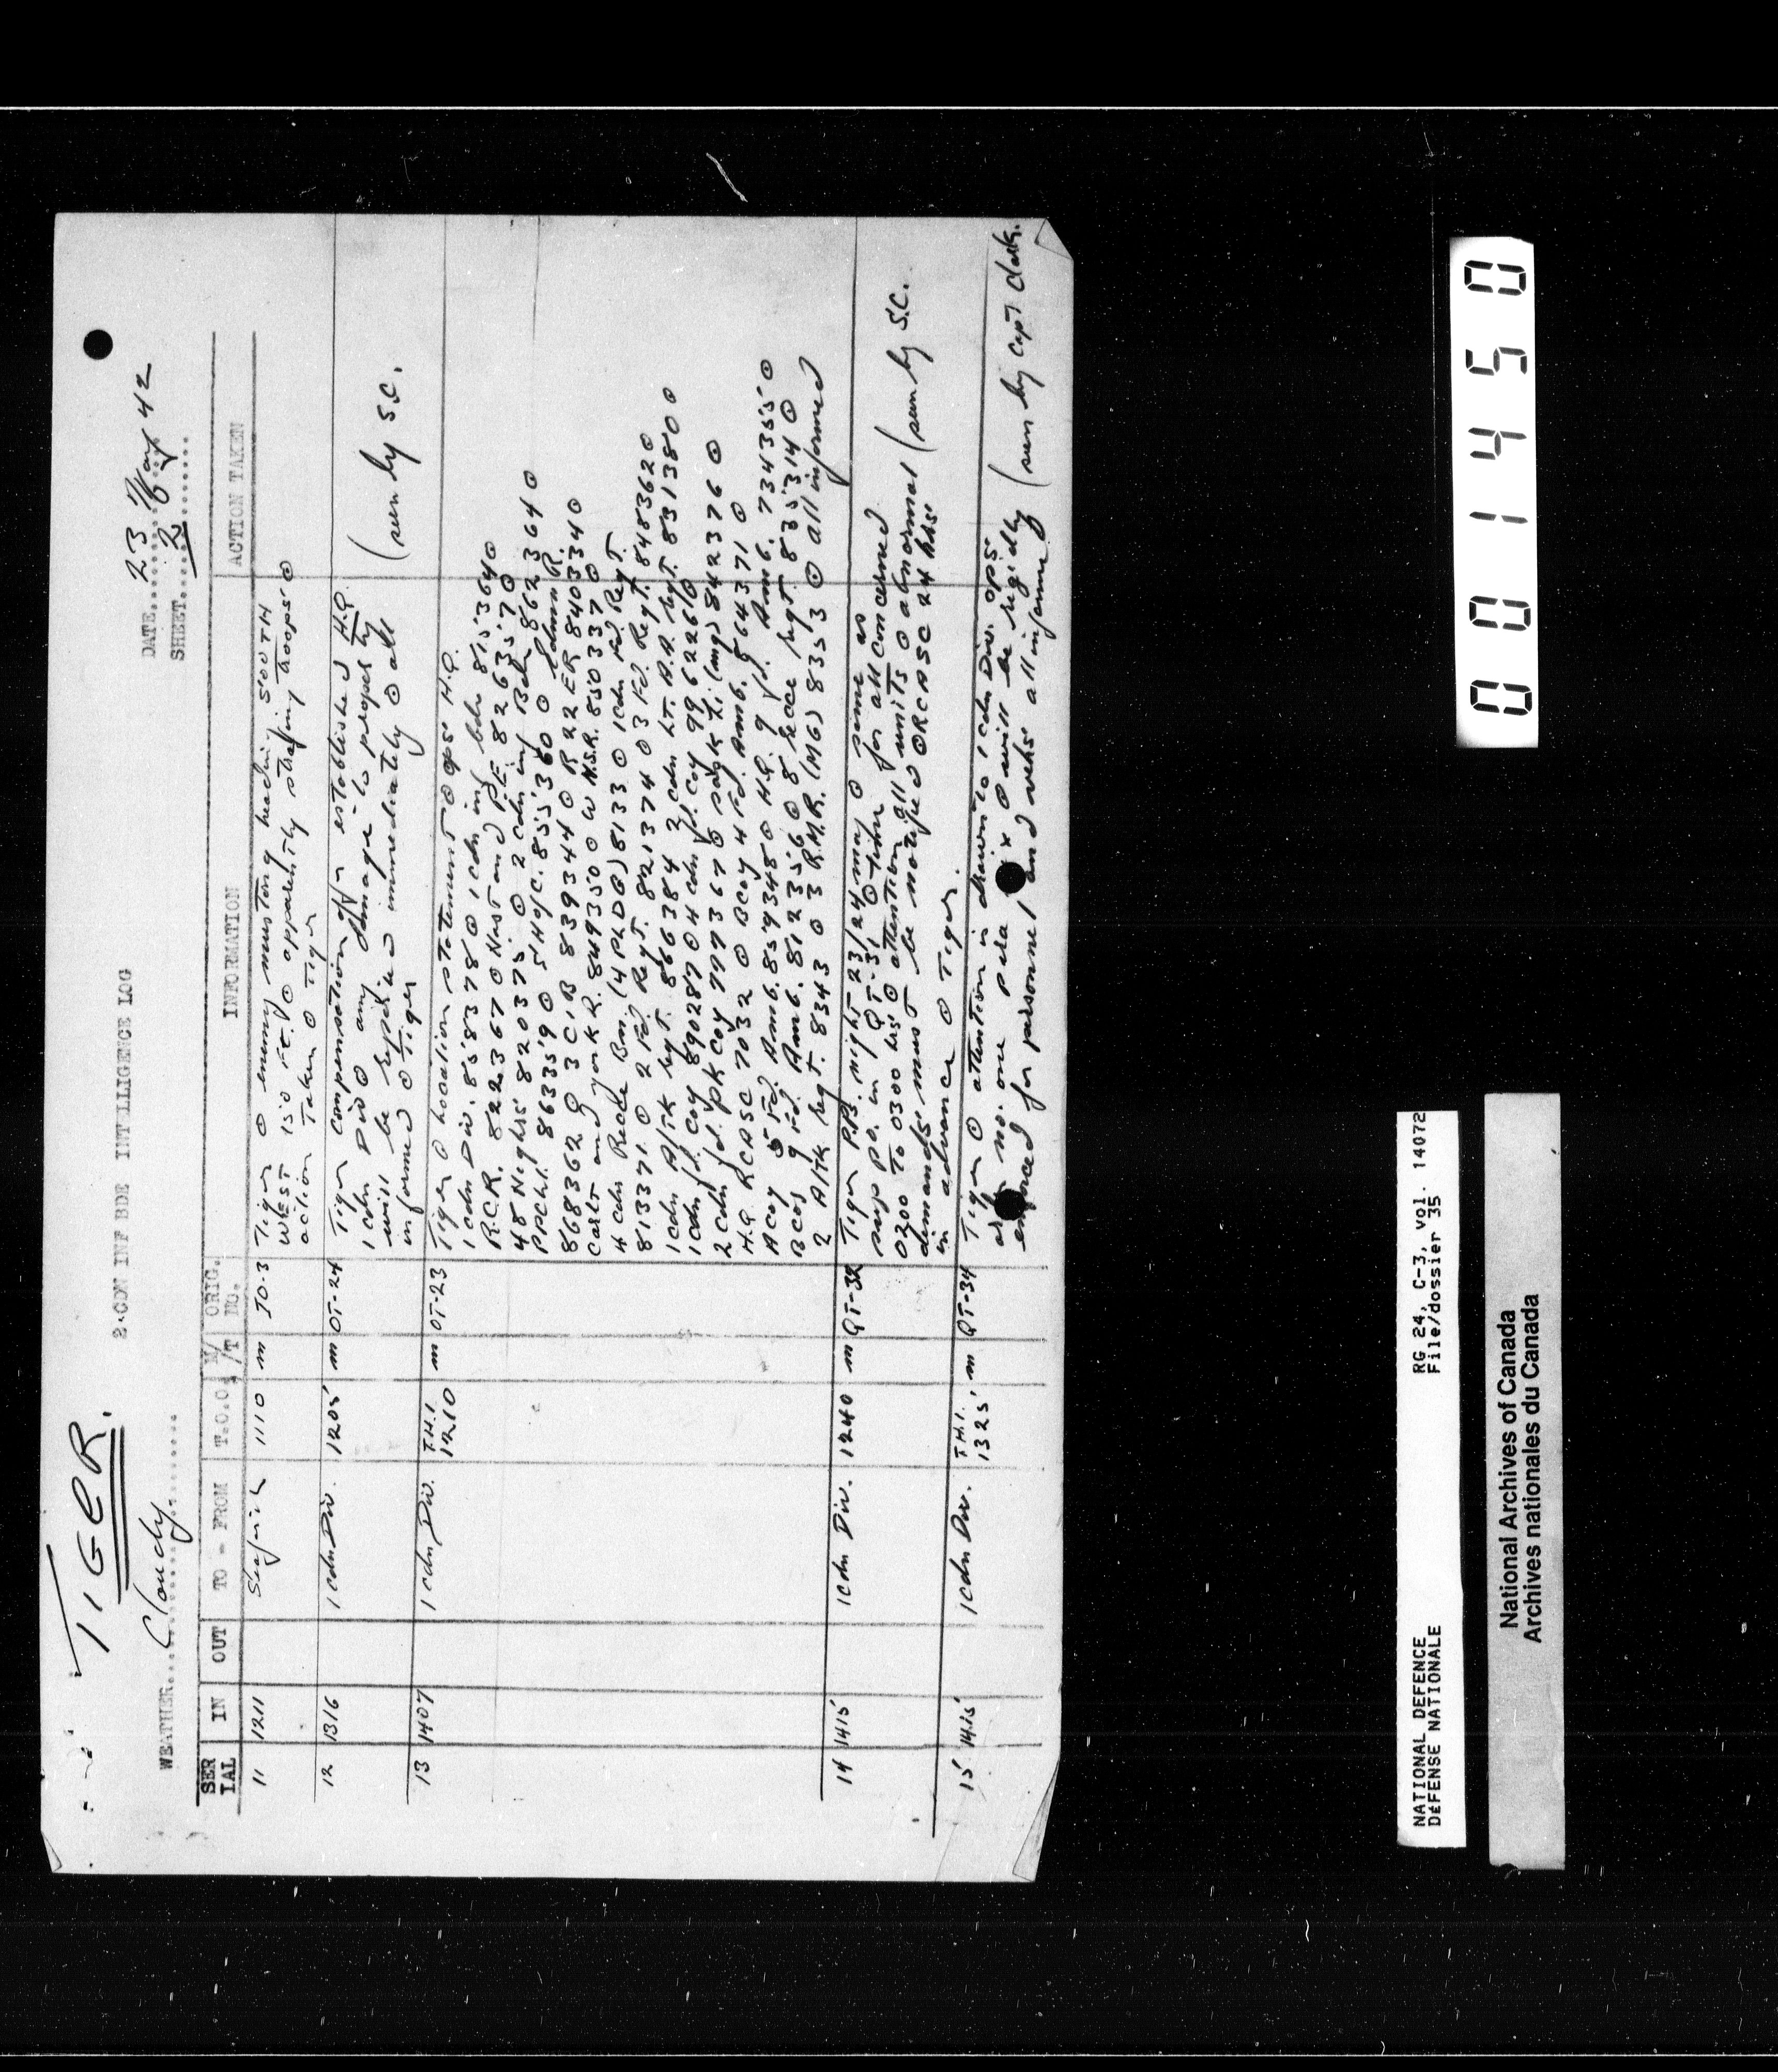 TIGER.
2 CDN INF BDE INTELLIGENCE LOG
DATE....23 May 42
WEATHER....Cloudy
SHEET....2
SER IAL | IN | OUT | TO - FROM | T.O.O. | M/ /T | ORIG. NO. | INFORMATION | ACTION TAKEN
11 1211 1110 m IO-3 Tiger ⊙ enemy mustang heading SOUTH
WEST 150 ft. ⊙ apparently strafing troops ⊙
action Taken ⊙ Tiger
12 1316 1 Cdn Div. 1205 m OT-24 Tiger compensation established H.Q.
1 Cdn Div ⊙ any damage to property
will be immediately ⊙ all
informed ⊙ Tiger (seen by S.C.
13 1407 1 Cdn Div. T.H.I. 1210 m OT-23 Tiger ⊙ Location statement ⊙ ops H.Q.
1 Cdn Div. 858378 ⊙ 1 Cdn inf bde 815364 ⊙
R.C.R. 822367 ⊙ Hast and P.E. 826357 ⊙
48 Highrs 820375 ⊙ 2 Cdn inf Bde 862364 ⊙
PPCLI. 863359 ⊙ SHofC. 855360 ⊙ Edmn R.
868362 ⊙ 3 C.I.B 839344 ⊙ R22ER 840334 ⊙
Carlt and York R. 849350 ⊙ W.N.S.R. 850337 ⊙
4 Cdn Recce Bn. (4 PLDG) 8133 ⊙ 1 Cdn Fd Regt.
813371 ⊙ 2 Fd. Regt. 821374 ⊙ 3 Fd. Regt. 848362 ⊙
1 Cdn A/TK regt. 866384 2 Cdn LT. A.A. regt. 831380 ⊙
1 Cdn fd. Coy 890287 ⊙ 4 Cdn fd. Coy 99622610
2 Cdn fd. PK Coy 777367 ⊙ (mg) 842376 ⊙
H.Q RCASC 7032 ⊙ B Coy 4 Fd. Amb. 864371 ⊙
A Coy 5 Fd. Amb. 859348 ⊙ H.Q. 9 fd. Amb. 734355 ⊙
B Coy 9 Fd. Amb. 812356 ⊙ 8 Recce regt. 835314 ⊙
2 A/TK regt. 8343 ⊙ 3 R.M.R. (MG) 8353 ⊙ all informed
14 1415 1 Cdn Div. 1240 m QT-32 Tiger night 23/24 may ⊙ same as
in QT-31 ⊙ time for all concerned
0200 To 0300 hrs ⊙ attention all units ⊙ abnormal (seen by S.C.
demands must be notified ⊙ RCASC 24 hrs
in advance ⊙ Tiger.
15 1415 1 Cdn Div. T.H.I. 1325 m QT-34 Tiger ⊙ attention is drawn to 1 Cdn Div. ops.
no. one para x ⊙ will be rigidly (seen by Capt Clark.
enforced for personnel and vehs all informed
001450
NATIONAL DEFENCE
DÉFENSE NATIONALE
RG 24, C-3, vol. 14072
File/dossier 35
National Archives of Canada
Archives nationales du Canada